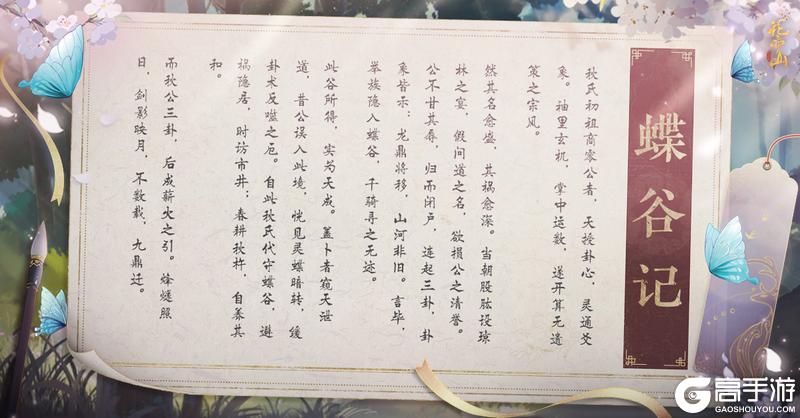 蝶谷记
秋氏初祖商霖公者，天授卦心，灵通爻
象。袖里玄机，掌中运数，遂开算无遗
策之宗风。
然其名愈盛，其祸愈深。当朝股肱设琼
林之宴，假问道之名，欲损公之清誉。
公不甘其辱，归而闭户，连起三卦，卦
象皆示：龙鼎将移，山河非旧。言毕，
举族隐入蝶谷，千骑寻之无迹。
此谷所得，实为天成。盖卜者窥天泄
道，昔公误入此境，恍见灵蝶暗转，缓
卦术反噬之厄。自此秋氏代守蝶谷，避
祸隐居，时访市井；春耕秋杵，自养其
和。
而秋公三卦，后成薪火之引。烽燧照
日，剑影映月，不数载，九鼎迁。
高手游
GAOSHOUYOU.COM